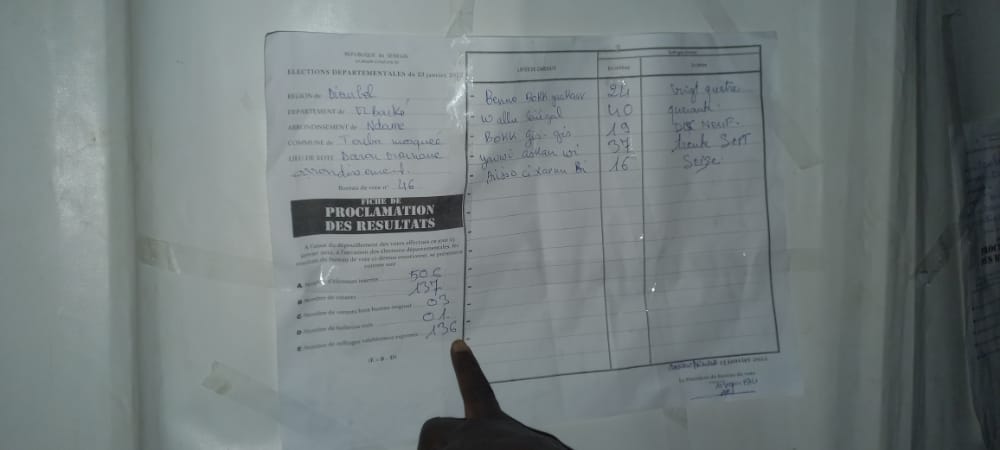 REPUBLIQUE du SENEGAL
ELECTIONS DEPARTEMENTALES du 23 janvier 2022
REGION de Diourbel
DEPARTEMENT de M'Backé
ARRONDISSEMENT de Ndame
COMMUNE de Touba mosquée
LIEU DE VOTE Darou
arrondissement.
Bureau de vote n° 46
FICHE DE
PROCLAMATION
DES RESULTATS
A l'issue du dépouillement des votes effectués en ce jour 23
janvier 2022, à l'occasion des élections départementales, les
résultats du bureau de vote ci-dessus mentionné, se présentent
comme suit
A Nombre d'électeurs inscrits 506
B Nombre de votants 137
C Nombre de votants hors bureau originel 03
D Nombre de bulletins nuls 01
E Nombre de suffrages valablement exprimés 136
(E = B - D)
LISTES DE CANDIDATS
Suffrages obtenus
En chiffres
En lettres
Benno Bokk yakaar 24 vingt quatre
Wallu Sénégal 40 quarante
Bokk gis-gis 19 DIX NEUF.
yewwi askan wi 37 trente SEPT
16 Seize
Le Président du bureau de vote